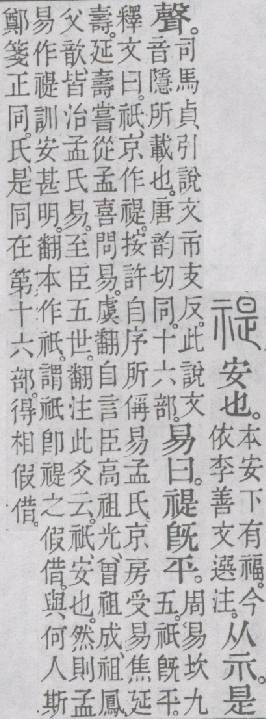 禔安也。本安下有福。今依李善文選注。从示。是
聲。司馬貞引說文市支反。此說文音隱所載也。唐韵切同。十六部。易曰。禔旣平。周易坎九五。祇旣平。
釋文曰。祇。京作禔。按許自序所偁易孟氏。京房受易焦延
壽。延壽嘗從孟喜問易。虞翻自言臣高祖光。曾祖成。祖鳳。
父歆皆治孟氏易。至臣五世。翻注此爻云。祇。安也。然則孟
易作禔訓安甚明。翻本作祇。謂祇卽禔之假借。與何人斯
鄭箋正同。氏是同在第十六部。得相假借。